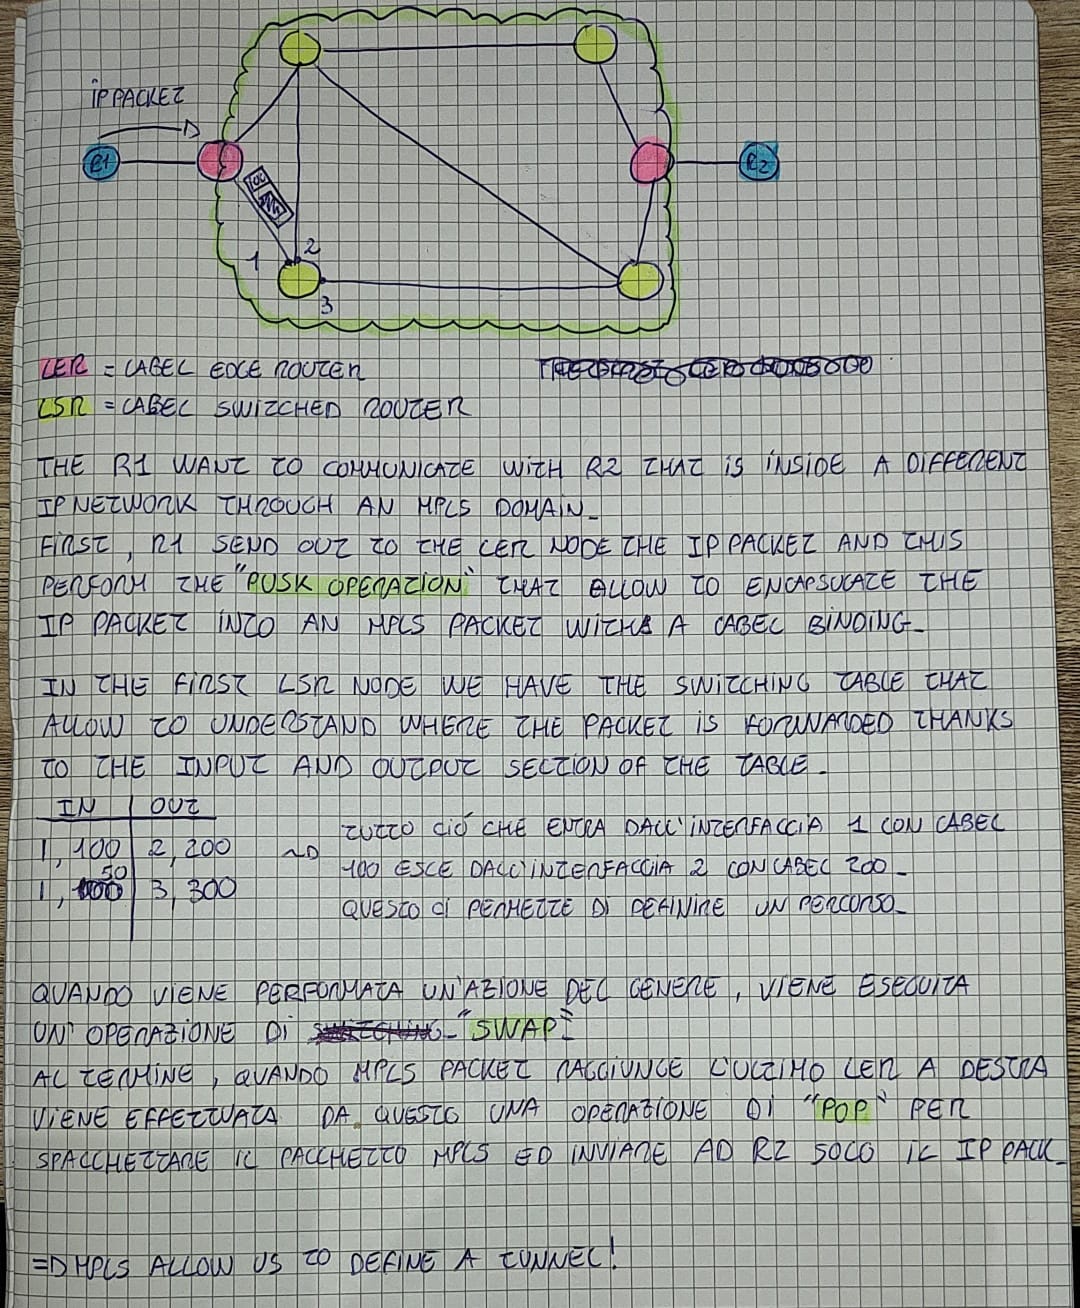 IP PACKET
R1
R2
100
1
2
3
LER = LABEL EDGE ROUTER
LSR = LABEL SWITCHED ROUTER
THE R1 WANT TO COMMUNICATE WITH R2 THAT IS INSIDE A DIFFERENT
IP NETWORK THROUGH AN MPLS DOMAIN_
FIRST, R1 SEND OUT TO THE LER NODE THE IP PACKET AND THIS
PERFORM THE "PUSK OPERATION" THAT ALLOW TO ENCAPSULATE THE
IP PACKET INTO AN MPLS PACKET WITH A LABEL BINDING_
IN THE FIRST LSR NODE WE HAVE THE SWITCHING TABLE THAT
ALLOW TO UNDERSTAND WHERE THE PACKET IS FORWARDED THANKS
TO THE INPUT AND OUTPUT SECTION OF THE TABLE.
IN OUT
1, 100 2, 200
1, 50 3, 300
TUTTO CIÓ CHE ENTRA DALL'INTERFACCIA 1 CON LABEL
100 ESCE DALL'INTERFACCIA 2 CON LABEL 200_
QUESTO CI PERMETTE DI DEFINIRE UN PERCORSO_
QUANDO VIENE PERFORMATA UN'AZIONE DEL GENERE, VIENE ESEGUITA
UN' OPERAZIONE DI "SWAP"
AL TERMINE, QUANDO MPLS PACKET RAGGIUNGE L'ULTIMO LER A DESTRA
VIENE EFFETTUATA DA QUESTO UNA OPERAZIONE DI "POP" PER
SPACCHETTARE IL PACCHETTO MPLS ED INVIARE AD R2 SOLO IL IP PACK_
=D MPLS ALLOW US TO DEFINE A TUNNEL!